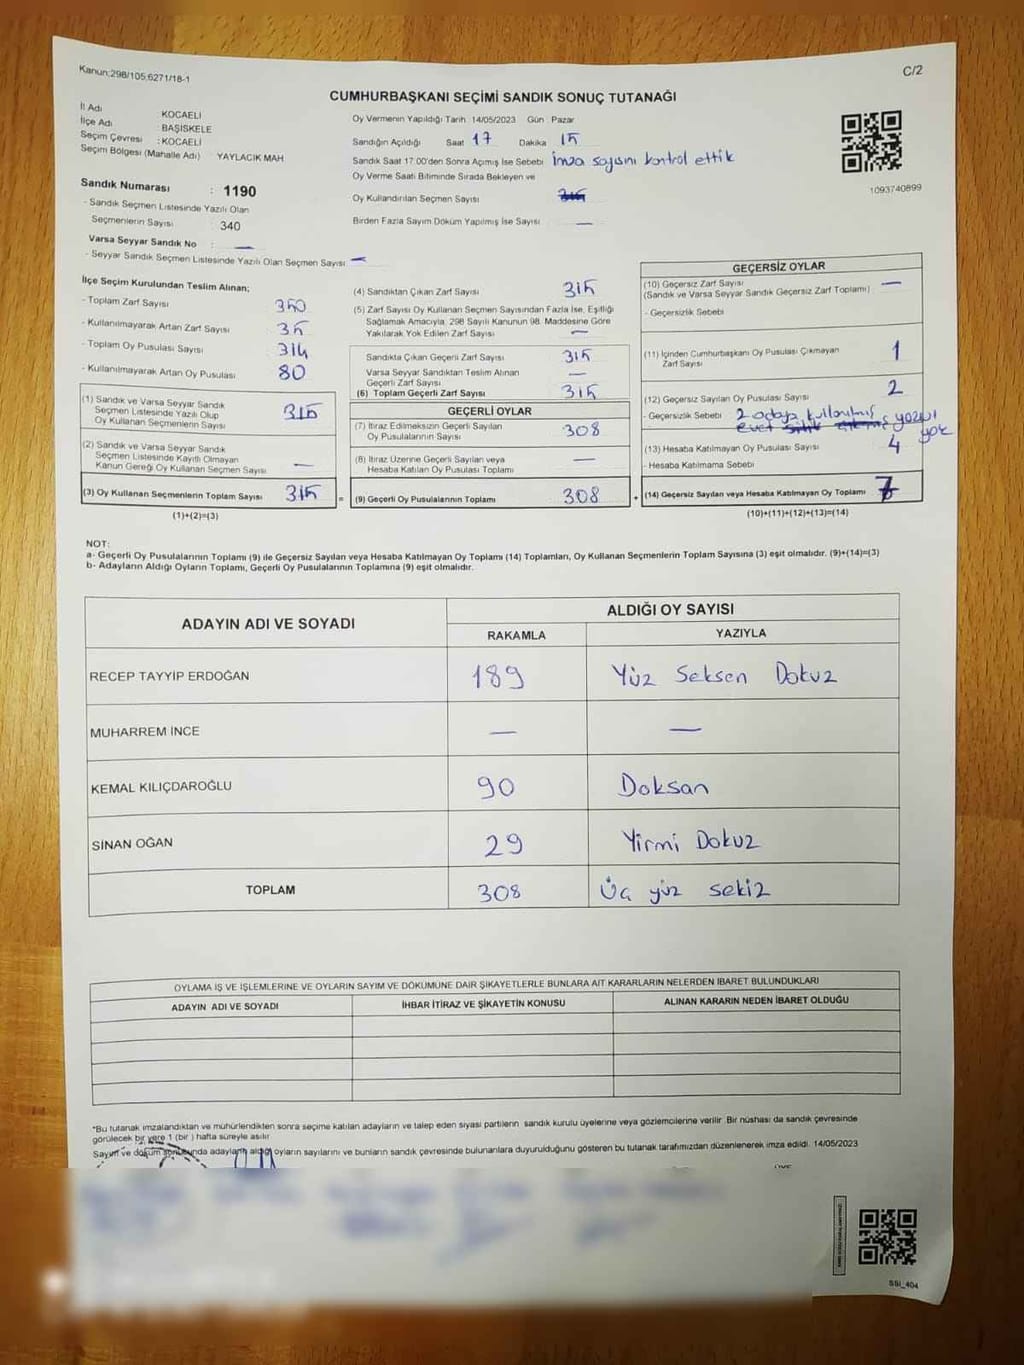 Kanun;298/105,6271/18-1
C/2
CUMHURBAŞKANI SEÇİMİ SANDIK SONUÇ TUTANAĞI
İl Adı : KOCAELİ
İlçe Adı : BAŞİSKELE
Seçim Çevresi : KOCAELİ
Seçim Bölgesi (Mahalle Adı) : YAYLACIK MAH
Sandık Numarası : 1190
- Sandık Seçmen Listesinde Yazılı Olan
Seçmenlerin Sayısı : 340
Varsa Seyyar Sandık No : —
- Seyyar Sandık Seçmen Listesinde Yazılı Olan Seçmen Sayısı: —
Oy Vermenin Yapıldığı Tarih 14/05/2023 Gün : Pazar
Sandığın Açıldığı Saat 17 Dakika 15
Sandık Saat 17:00'den Sonra Açımış İse Sebebi imza sayısını kontrol ettik
Oy Verme Saati Bitiminde Sırada Bekleyen ve
Oy Kullandırılan Seçmen Sayısı
Birden Fazla Sayım Döküm Yapılmış İse Sayısı —
1093740899
İlçe Seçim Kurulundan Teslim Alınan;
- Toplam Zarf Sayısı 350
- Kullanılmayarak Artan Zarf Sayısı 35
- Toplam Oy Pusulası Sayısı
- Kullanılmayarak Artan Oy Pusulası 80
(1) Sandık ve Varsa Seyyar Sandık
Seçmen Listesinde Yazılı Olup
Oy Kullanan Seçmenlerin Sayısı 315
(2) Sandık ve Varsa Seyyar Sandık
Seçmen Listesinde Kayıtlı Olmayan
Kanun Gereği Oy Kullanan Seçmen Sayısı —
(3) Oy Kullanan Seçmenlerin Toplam Sayısı 315
(1)+(2)=(3)
(4) Sandıktan Çıkan Zarf Sayısı 315
(5) Zarf Sayısı Oy Kullanan Seçmen Sayısından Fazla İse, Eşitliği
Sağlamak Amacıyla, 298 Sayılı Kanunun 98. Maddesine Göre
Yakılarak Yok Edilen Zarf Sayısı —
Sandıkta Çıkan Geçerli Zarf Sayısı 315
Varsa Seyyar Sandıktan Teslim Alınan
Geçerli Zarf Sayısı —
(6) Toplam Geçerli Zarf Sayısı 315
GEÇERLİ OYLAR
(7) İtiraz Edilmeksizin Geçerli Sayılan
Oy Pusulalarının Sayısı 308
(8) İtiraz Üzerine Geçerli Sayılan veya
Hesaba Katılan Oy Pusulası Toplamı —
= (9) Geçerli Oy Pusulalarının Toplamı 308 +
GEÇERSİZ OYLAR
(10) Geçersiz Zarf Sayısı —
(Sandık ve Varsa Seyyar Sandık Geçersiz Zarf Toplamı)
- Geçersizlik Sebebi
(11) İçinden Cumhurbaşkanı Oy Pusulası Çıkmayan
Zarf Sayısı 1
(12) Geçersiz Sayılan Oy Pusulası Sayısı 2
- Geçersizlik Sebebi 2 adaya kullanılmış
evet yazısı
yok
(13) Hesaba Katılmayan Oy Pusulası Sayısı 4
- Hesaba Katılmama Sebebi
(14) Geçersiz Sayılan veya Hesaba Katılmayan Oy Toplamı 7
(10)+(11)+(12)+(13)=(14)
NOT:
a- Geçerli Oy Pusulalarının Toplamı (9) ile Geçersiz Sayılan veya Hesaba Katılmayan Oy Toplamı (14) Toplamları, Oy Kullanan Seçmenlerin Toplam Sayısına (3) eşit olmalıdır. (9)+(14)=(3)
b- Adayların Aldığı Oyların Toplamı, Geçerli Oy Pusulalarının Toplamına (9) eşit olmalıdır.
ADAYIN ADI VE SOYADI ALDIĞI OY SAYISI
RAKAMLA YAZIYLA
RECEP TAYYİP ERDOĞAN 189 Yüz Seksen Dokuz
MUHARREM İNCE — —
KEMAL KILIÇDAROĞLU 90 Doksan
SİNAN OĞAN 29 Yirmi Dokuz
TOPLAM 308 Üç yüz sekiz
OYLAMA İŞ VE İŞLEMLERİNE VE OYLARIN SAYIM VE DÖKÜMÜNE DAİR ŞİKAYETLERLE BUNLARA AİT KARARLARIN NELERDEN İBARET BULUNDUKLARI
ADAYIN ADI VE SOYADI İHBAR İTİRAZ VE ŞİKAYETİN KONUSU ALINAN KARARIN NEDEN İBARET OLDUĞU
*Bu tutanak imzalandıktan ve mühürlendikten sonra seçime katılan adayların ve talep eden siyasi partilerin sandık kurulu üyelerine veya gözlemcilerine verilir. Bir nüshası da sandık çevresinde
görülecek bir yere 1 (bir ) hafta süreyle asılır
Sayım ve döküm sonucunda adayların aldığı oyların sayılarını ve bunların sandık çevresinde bulunanlara duyurulduğunu gösteren bu tutanak tarafımızdan düzenlenerek imza edildi. 14/05/2023
SSI_404